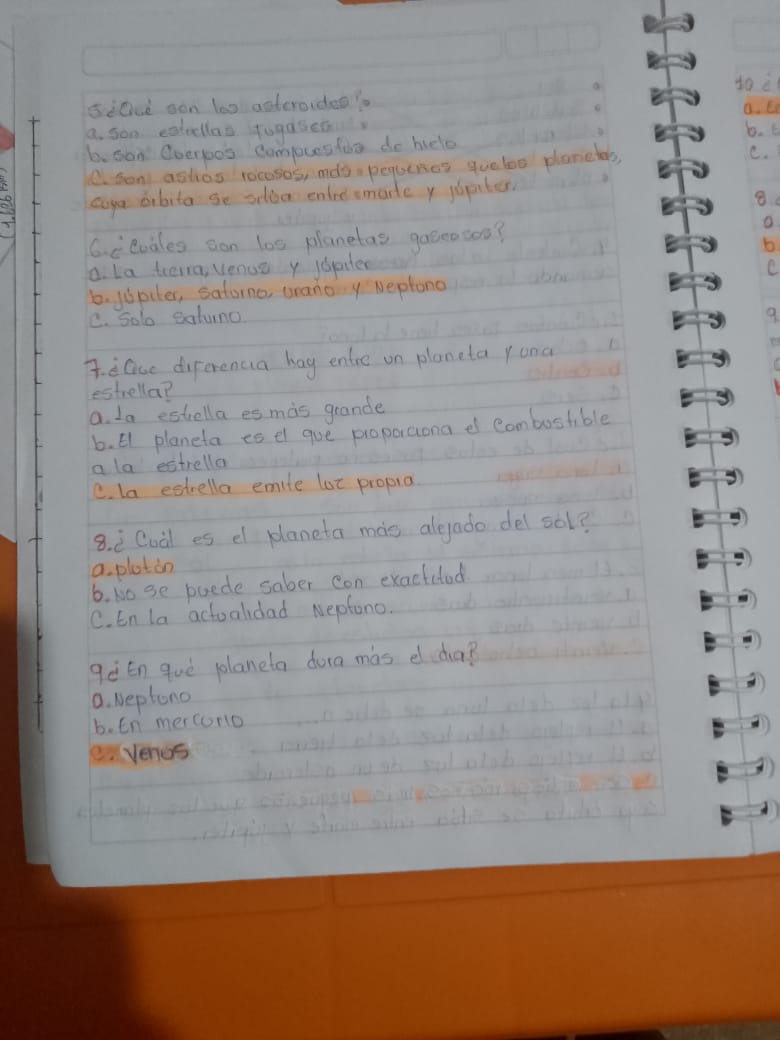 5¿Qué son los asteroides?
a. son estrellas fugases
b. son Cuerpos compuestos de hielo
C. son astros rocosos, más pequeños que los planetas,
cuya órbita se sitúa entre marte y júpiter.
6.¿Cuáles son los planetas gaseosos?
a. La tierra, Venus y júpiter
b. júpiter, saturno, urano y Neptuno
C. Solo saturno
7.¿Que diferencia hay entre un planeta y una
estrella?
a. La estrella es más grande
b. El planeta es el que proporciona el combustible
a la estrella
C. La estrella emite luz propia
8.¿Cuál es el planeta más alejado del sol?
a. plutón
b. No se puede saber con exactitud
C. En la actualidad Neptuno.
9¿En qué planeta dura más el día?
a. Neptuno
b. En mercurio
C. Venus
10 ¿
a.
b.
C.
8
a
b
C
9